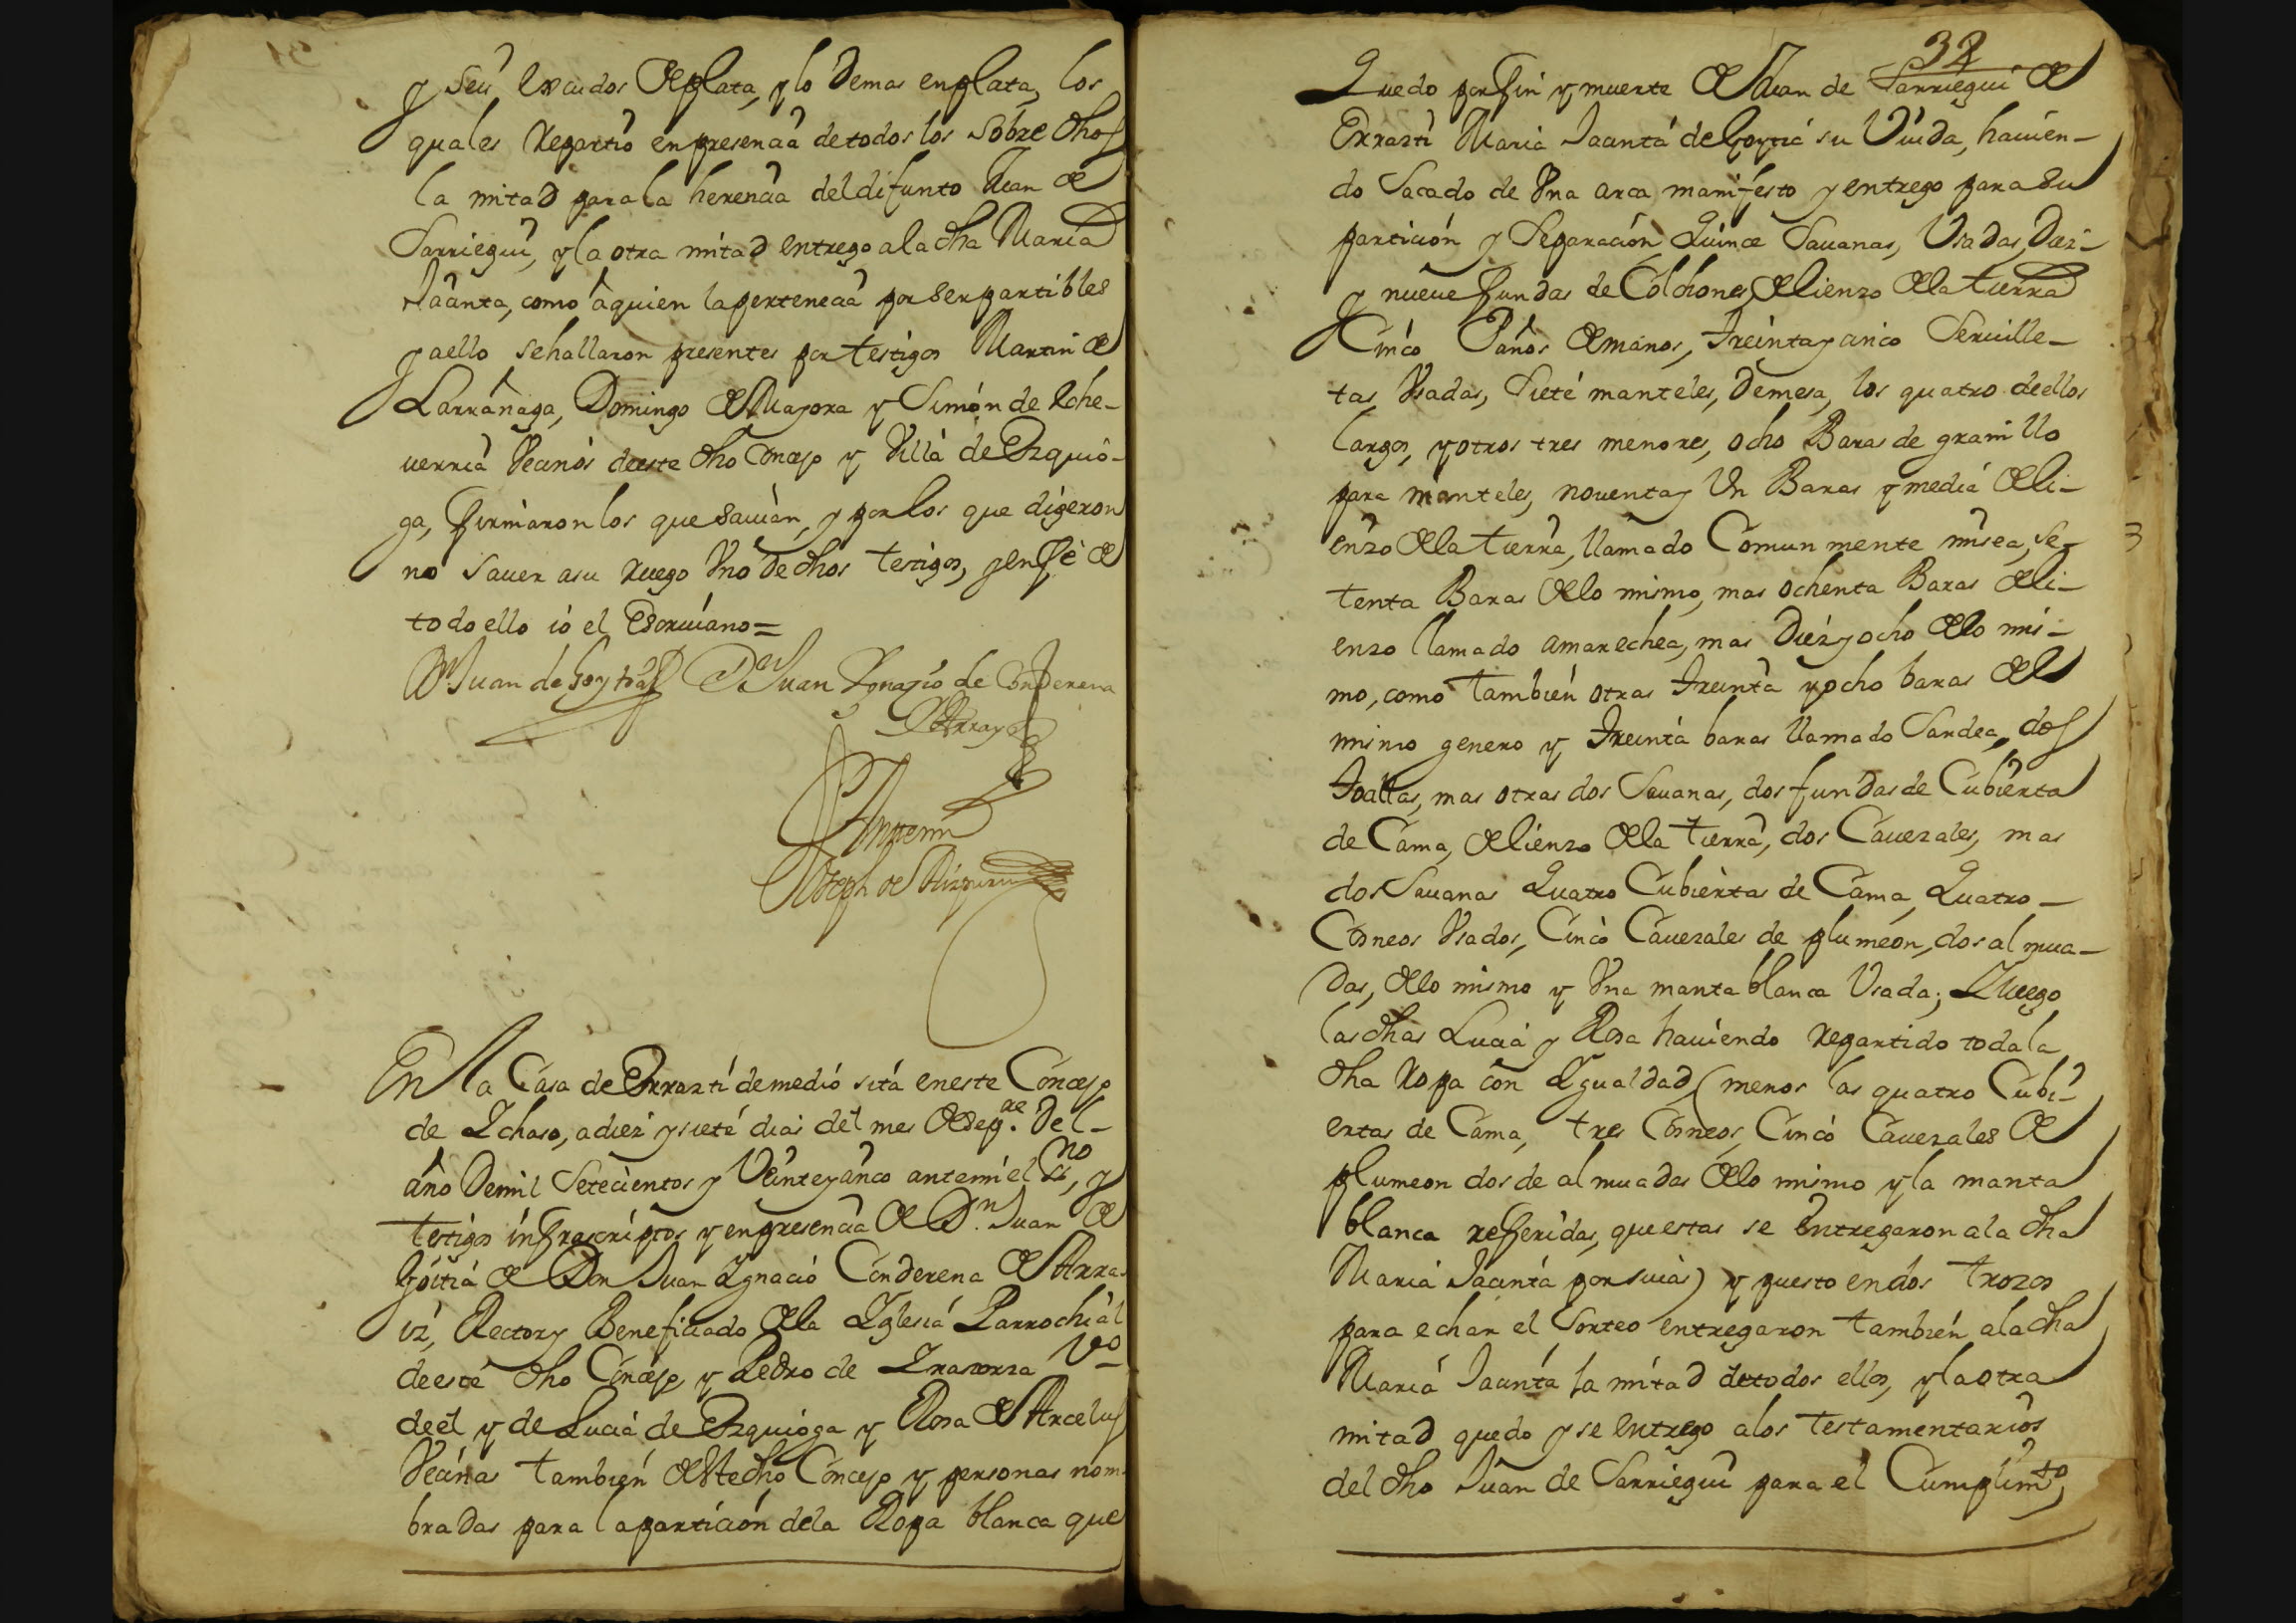 y seis Escudos de plata, y lo demas en plata, los
quales Repartio en presencia de todos los sobre dhos
la mitad para la herencia del difunto Juan de
Sarriegui, y la otra mitad entrego a la dha Maria
Jacinta, como a quien la pertenecia por ser partibles
y a ello se hallaron presentes por testigos Martin de
Larrañaga, Domingo de Mayora y Simón de Eche-
uerria Vecinos de este dho Concejo y Villa de Ezquio-
ga, firmaron los que sauian, y por los que digeron
no sauer a su ruego Vno de dhos testigos, y en fe de
todo ello io el Escriuano =
Dn Juan de Goytia Dn Juan Ygnazio de Conderena
Arrayz
Ante mi
Joseph de Aizpuru
En la Casa de Errazti de medio sita en este Concejo
de Ychaso, a diez y siete dias del mes de Sepre. del
año de mil Setecientos y Veinte y cinco ante mi el Esno, y
testigos infrascriptos y en presencia de Dn. Juan de
Goitia de Don Juan Ygnacio Conderena de Arra-
iz, Rector y Beneficiado de la Yglesia Parrochial
de este dho Concejo, y Pedro de Yrasorza Vo
de el y de Lucia de Ezquioga y Rosa de Arcelus
Vecinas tambien de este dho Concejo y personas nom-
bradas para la partición de la Ropa blanca que
32
Quedo por fin y muerte de Juan de Sarriegui de
Errazti Maria Jacinta de Goytia su Viuda, hauien-
do Sacado de Vna arca manifesto y entrego para su
partición y Separación Quince Sauanas, Vsadas, Diez
y nueue fundas de Colchones de lienzo de la tierra
Cinco Paños de manos, treinta y cinco Seruille-
tas Vsadas, Siete manteles, de mesa, los quatro de ellos
largos, y otros tres menores, ocho Baras de granillo
para manteles, nouenta y Vn Baras y media de li-
enzo de la tierra, llamado Comunmente misea, se-
tenta Baras de lo mismo, mas ochenta Baras de li-
enzo llamado amarechea, mas Diez y ocho de lo mis-
mo, como tambien otras treinta y ocho baras del
mismo genero y treinta baras llamado Sardea, dos
toallas, mas otras dos Sauanas, dos fundas de Cubierta
de Cama, de lienzo de la tierra, dos Cauezales, mas
dos Sauanas Quatro Cubiertas de Cama, Quatro
Cosneos Vsados, Cinco Cauezales de plumeon, dos almua-
das, de lo mismo y Vna manta blanca Vsada; Luego
las dhas Lucia y Rosa hauiendo Repartido toda la
dha Ropa con Ygualdad (menos las quatro Cubi-
ertas de Cama, tres Cosneos, Cinco Cauezales de
plumeon dos de almuadas de lo mismo y la manta
blanca referidas, que estas se entregaron a la dha
Maria Jacinta por suias) y puesto en dos trozos
para echar el Sorteo entregaron tambien a la dha
Maria Jacinta la mitad de todos ellos, y la otra
mitad quedo y se entrego a los testamentarios
del dho Juan de Sarriegui para el Cumplimto